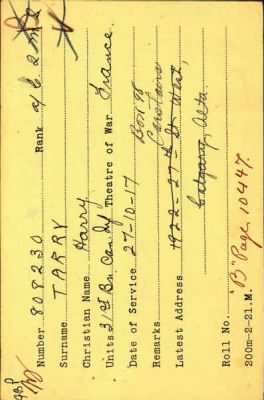 Number 808230 Rank a/C. 2 m.s
Surname TARRY
Christian Name Harry
Units 31st Bn. Can. Inf Theatre of War France.
Date of Service 27-10-17
Remarks Box 78 Carstairs
Latest Address 1922-27th St West,
Calgary, Alta.
Roll No. "B" Page 10447.
200m-2-21.M.